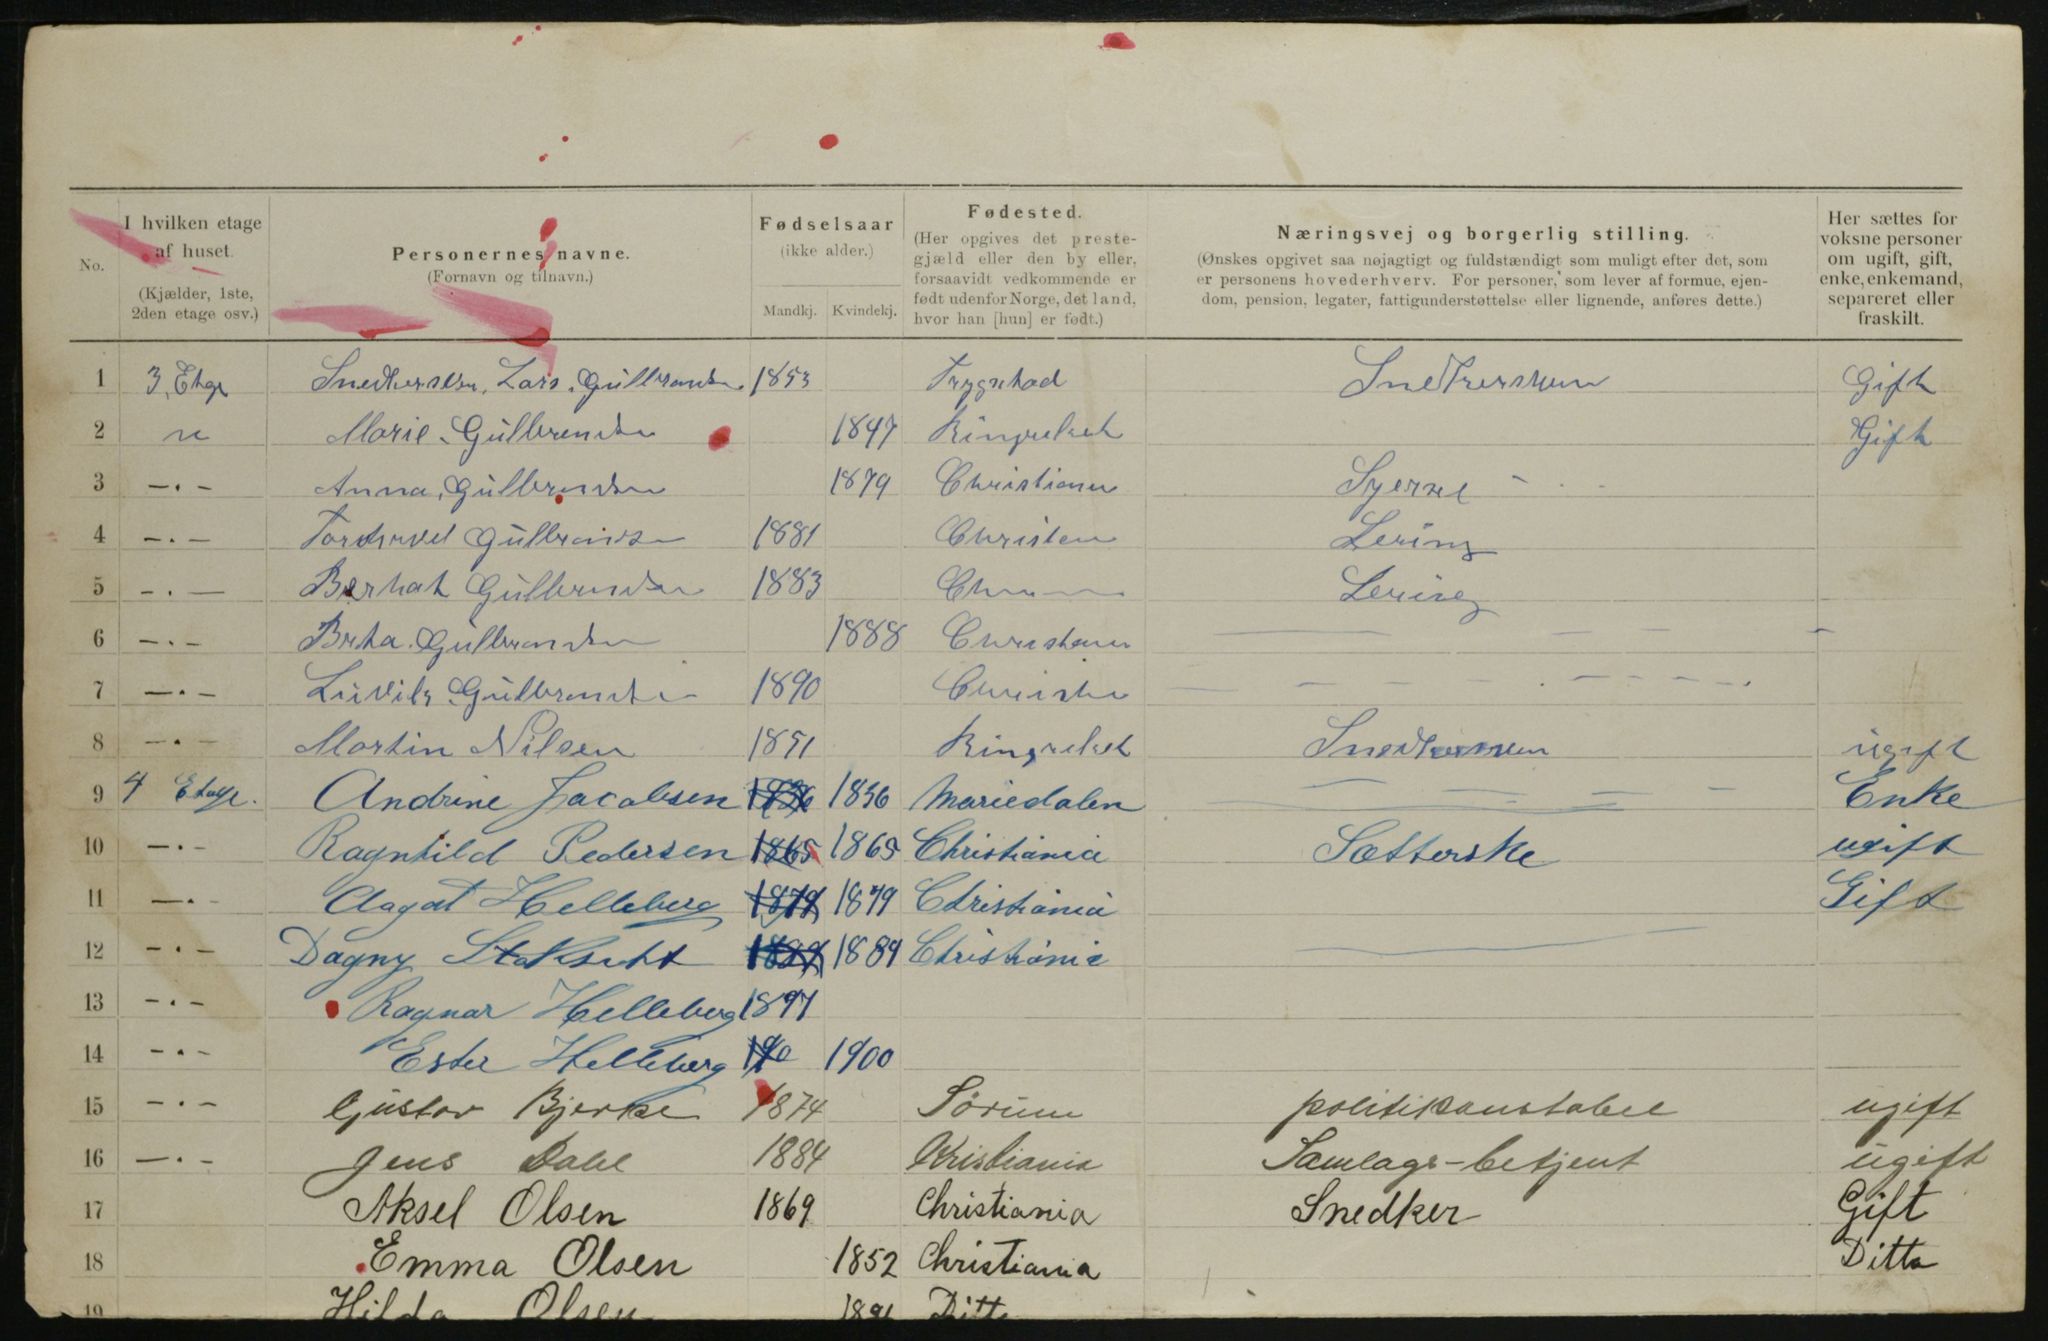 No.
I hvilken etage af huset.
(Kjælder, 1ste, 2den etage osv.)
Personernes navne.
(Fornavn og tilnavn.)
Fødselsaar
(ikke alder.)
Mandkj. Kvindekj.
Fødested.
(Her opgives det preste-
gjæld eller den by eller,
forsaavidt vedkommende er
født udenfor Norge, det land,
hvor han [hun] er født.)
Næringsvej og borgerlig stilling.
(Ønskes opgivet saa nøjagtigt og fuldstændigt som muligt efter det, som
er personens hovederhverv. For personer, som lever af formue, ejen-
dom, pension, legater, fattigunderstøttelse eller lignende, anføres dette.)
Her sættes for
voksne personer
om ugift, gift,
enke, enkemand,
separeret eller
fraskilt.
1 3, Etge Lars Gulbrandsen 1853 Trygstad Gift
2 Marie Gulbrandsen 1847 Gift
3 — . — Anna Gulbrandsen 1879 Christiania Syerske
4 — . — Gulbrandsen 1881 Lering
5 — . — Gulbrandsen 1883 Lering
6 — . — Gulbrandsen 1888
7 — . — Gulbrandsen 1890
8 — . — Martin Nilsen 1851 ugift
9 4 Etage. Andrine Jacobsen 1836 1836 Mariedalen Enke
10 — . — Ragnhild Pedersen 1865 1865 Christiania ugift
11 — . — Aagot Helleberg 1879 1879 Christiania Gift
12 — . — Dagny 1889 Christiania
13 — . — Ragnar Helleberg 1897
14 — . — Ester Helleberg 190 1900
15 — . — Gustav Bjerke 1874 Sörum politikonstabel ugift
16 — . — Jens Dahl 1884 Kristiania Samlags-betjent ugift
17 Aksel Olsen 1869 Christiania Snedker Gift
18 Emma Olsen 1852 Christiania Ditto
19 Hilda Olsen Ditto